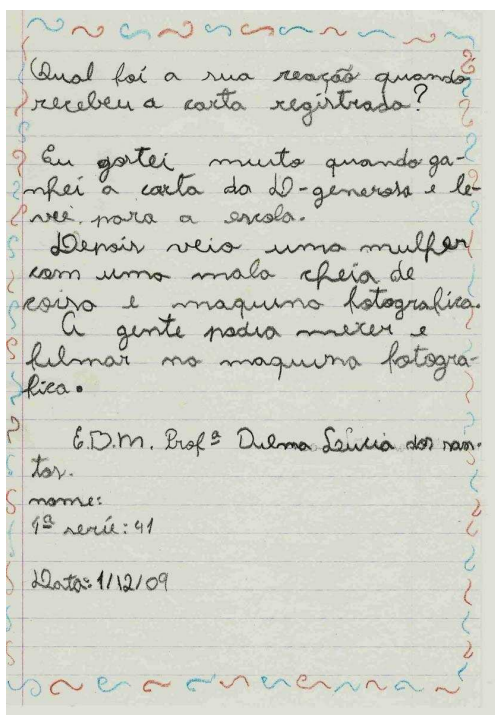 Qual foi a sua reação quando
recebeu a carta registrada?
Eu gostei muito quando ga-
nhei a carta da D-generosa e le-
vei para a escola.
Depois veio uma mulher
com uma mala cheia de
coisa e maquina fotografica.
A gente podia mexer e
filmar na maquina fotogra-
fica.
E.D.M. Profª Dilma Lúcia dos san-
tos.
nome:
4ª serie: 41
Data: 1/12/09